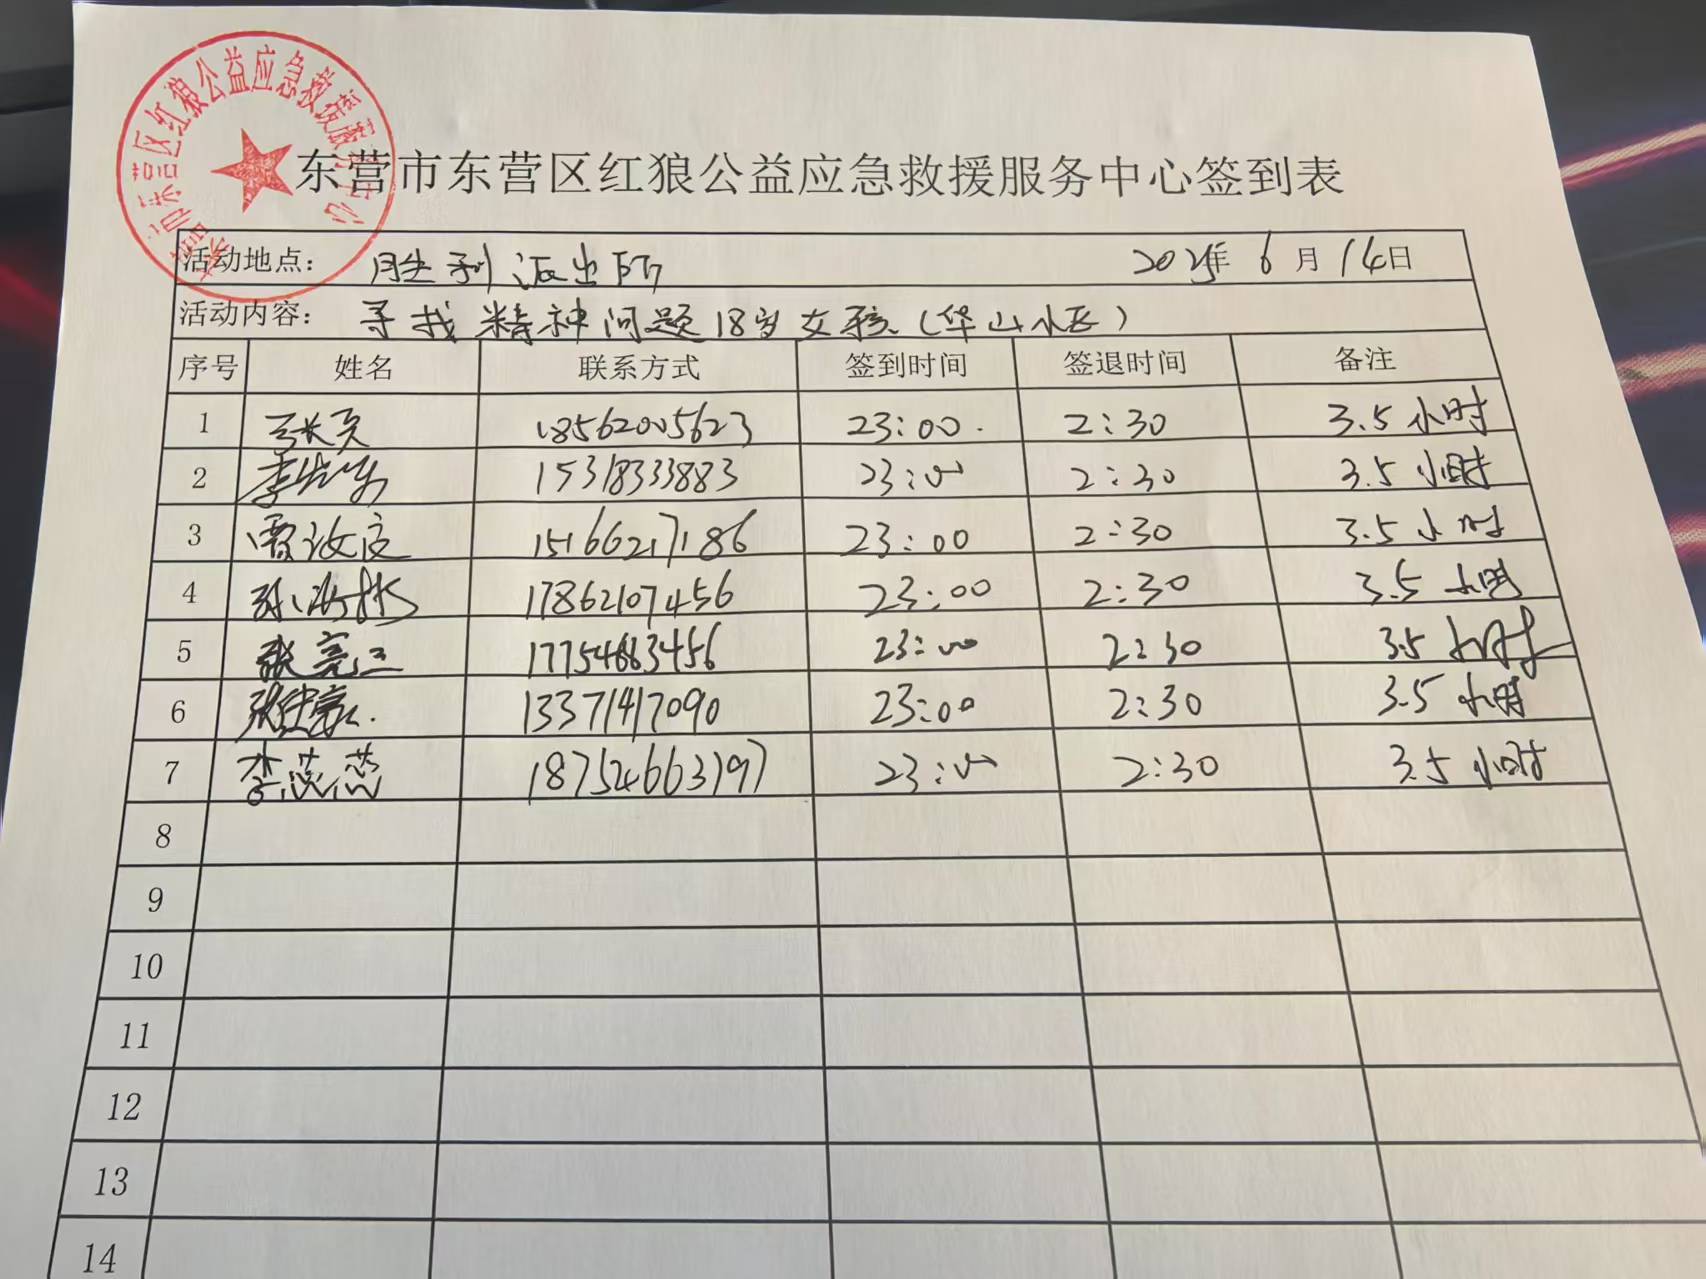 东营市东营区红狼公益应急救援服务中心
东营市东营区红狼公益应急救援服务中心签到表
活动地点: 胜利派出所 2025年 6 月 14日
活动内容: 寻找精神问题18岁女孩(华山小区)
序号 姓名 联系方式 签到时间 签退时间 备注
1 18562005623 23:00 2:30 3.5 小时
2 15318333883 23:00 2:30 3.5 小时
3 15166217186 23:00 2:30 3.5 小时
4 17862107456 23:00 2:30 3.5 小时
5 张亮 17754883456 23:00 2:30 3.5 小时
6 13371417090 23:00 2:30 3.5 小时
7 李蕊蕊 18754663797 23:00 2:30 3.5 小时
8
9
10
11
12
13
14